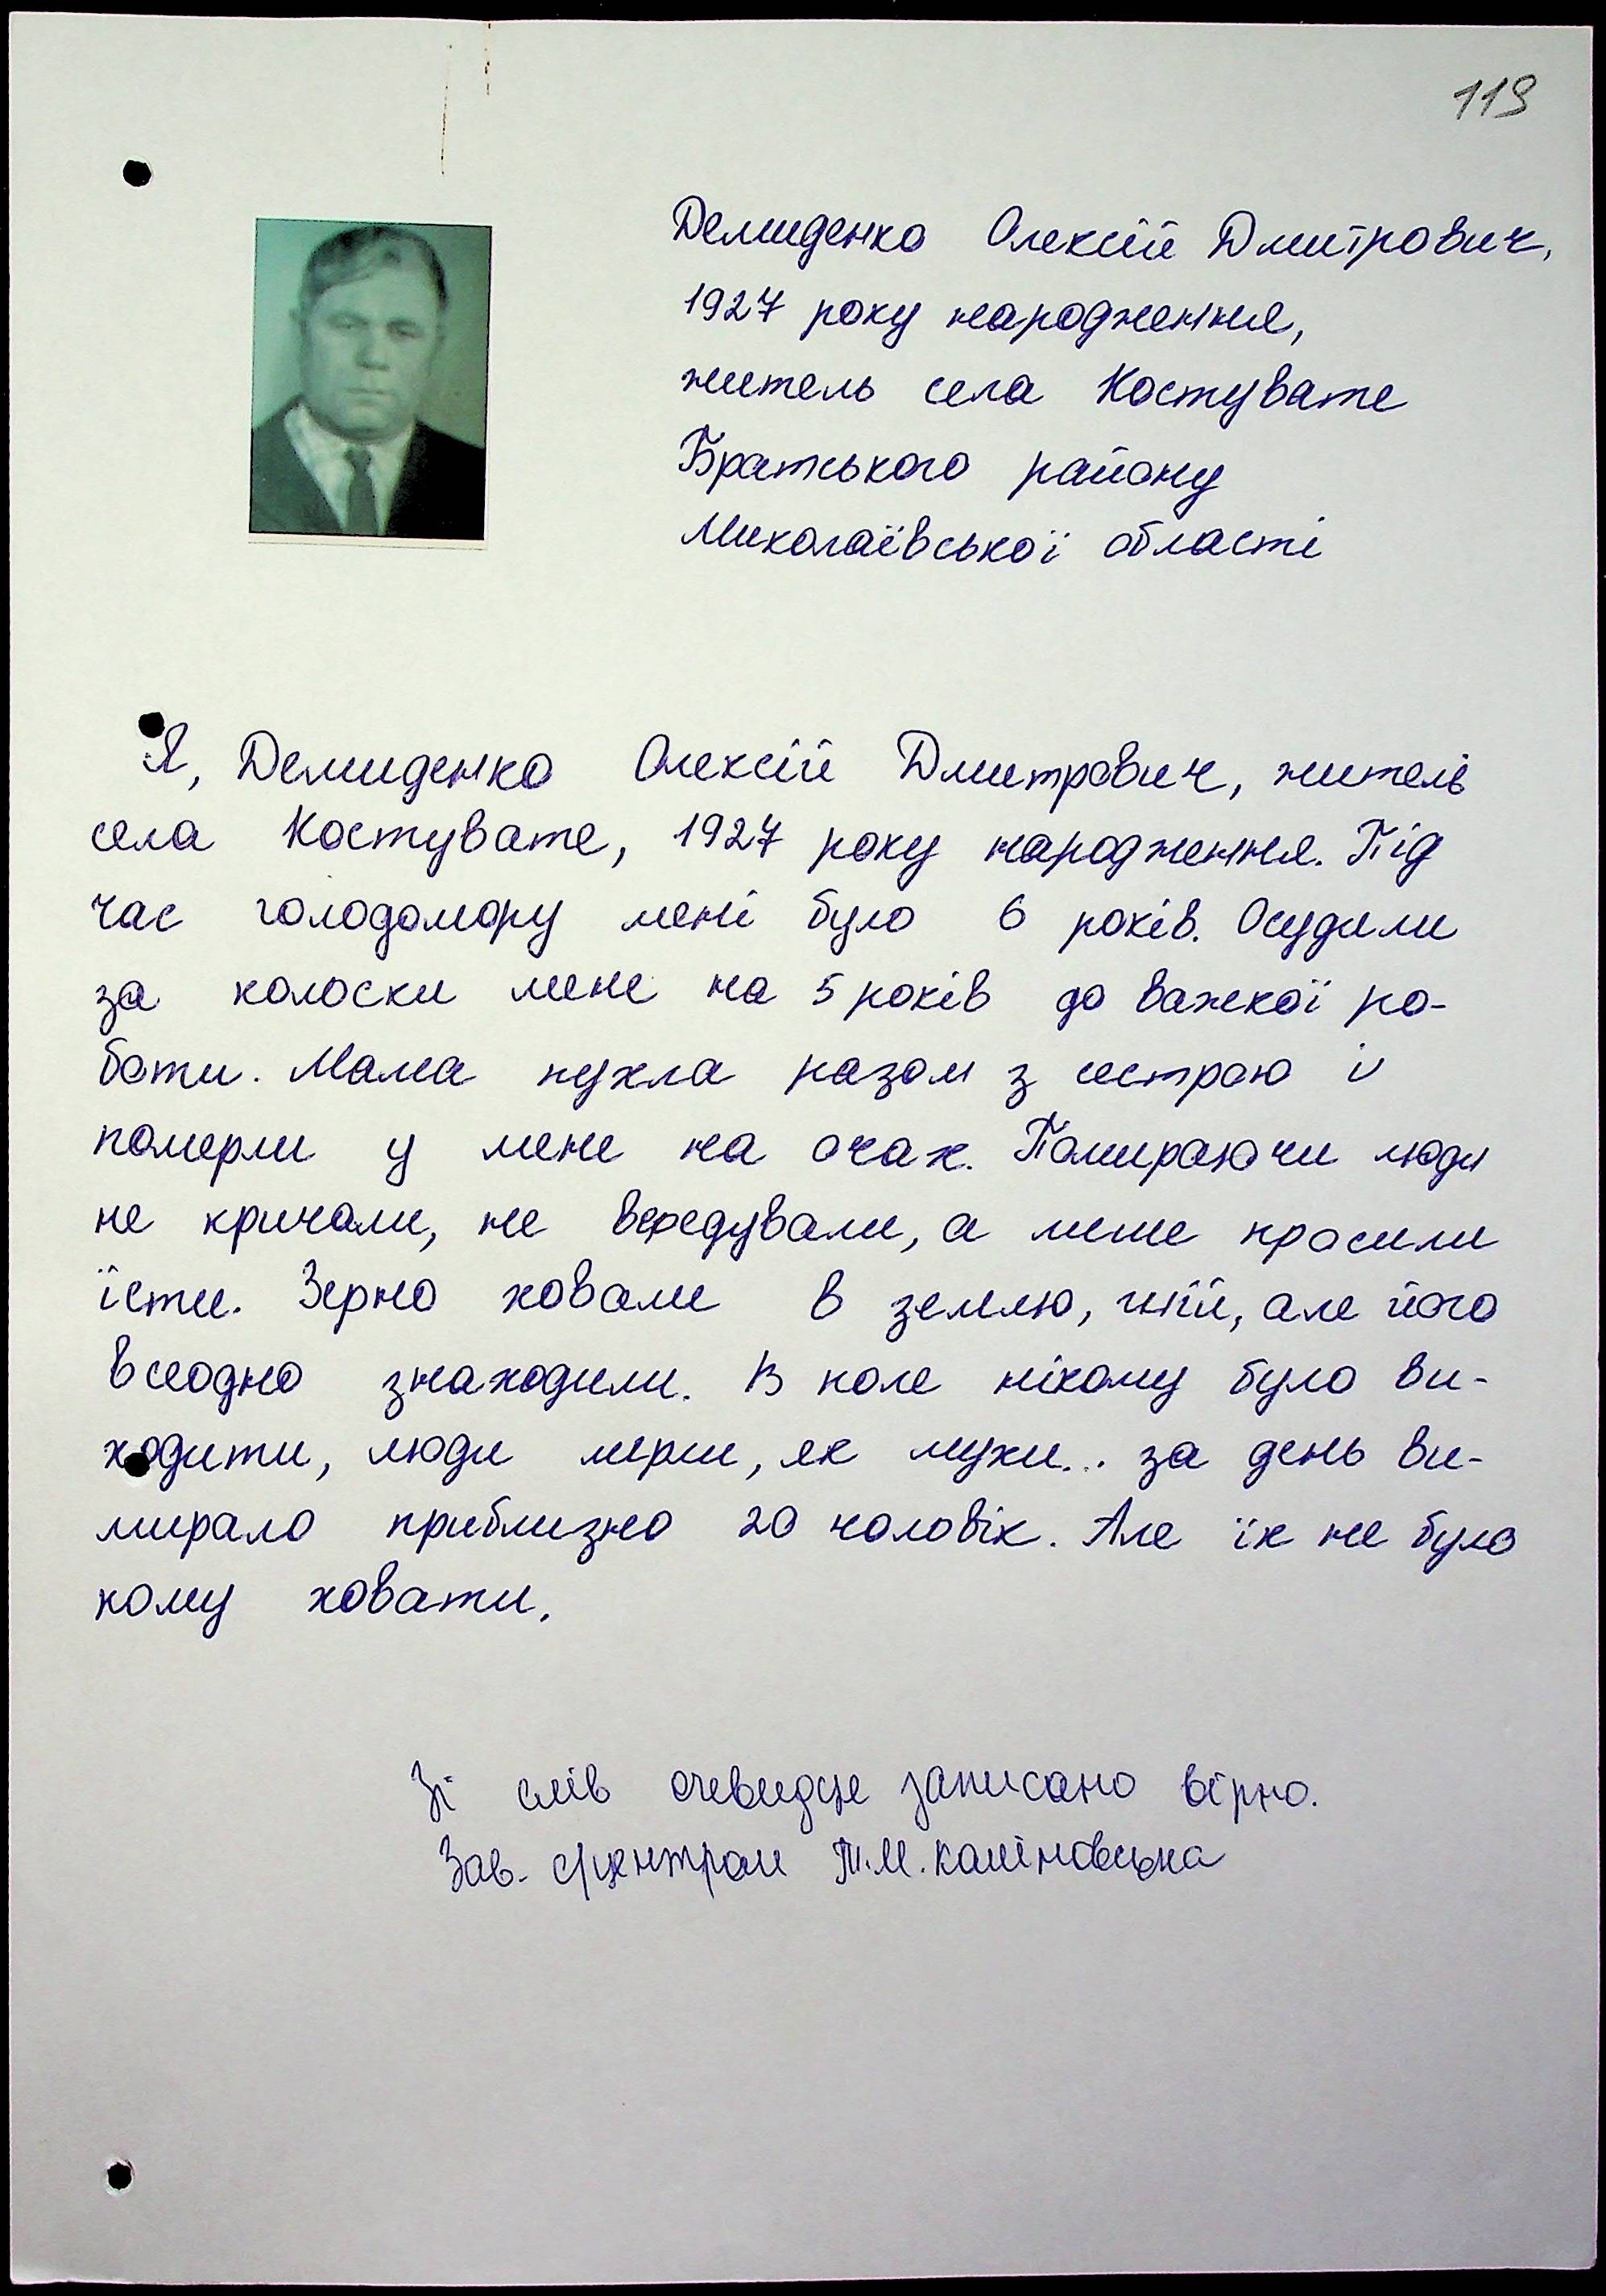 119
Демиденко Олексій Дмитрович,
1927 року народження,
житель села Костувате
Братського району
Миколаївської області
Я, Демиденко Олексій Дмитрович, житель
села Костувате, 1927 року народження. Під
час голодомору мені було 6 років. Осудили
за колоски мене на 5 років до важкої ро-
боти. Мама пухла разом з сестрою і
померли у мене на очах. Помираючи люди
не кричали, не вередували, а лише просили
їсти. Зерно ховали в землю, гній, але його
всеодно знаходили. В поле нікому було ви-
ходити, люди мерли, як мухи... за день ви-
мирало приблизно 20 чоловік. Але їх не було
кому ховати.
Зі слів очевидця записано вірно.
Зав. Т.М. Каліновська